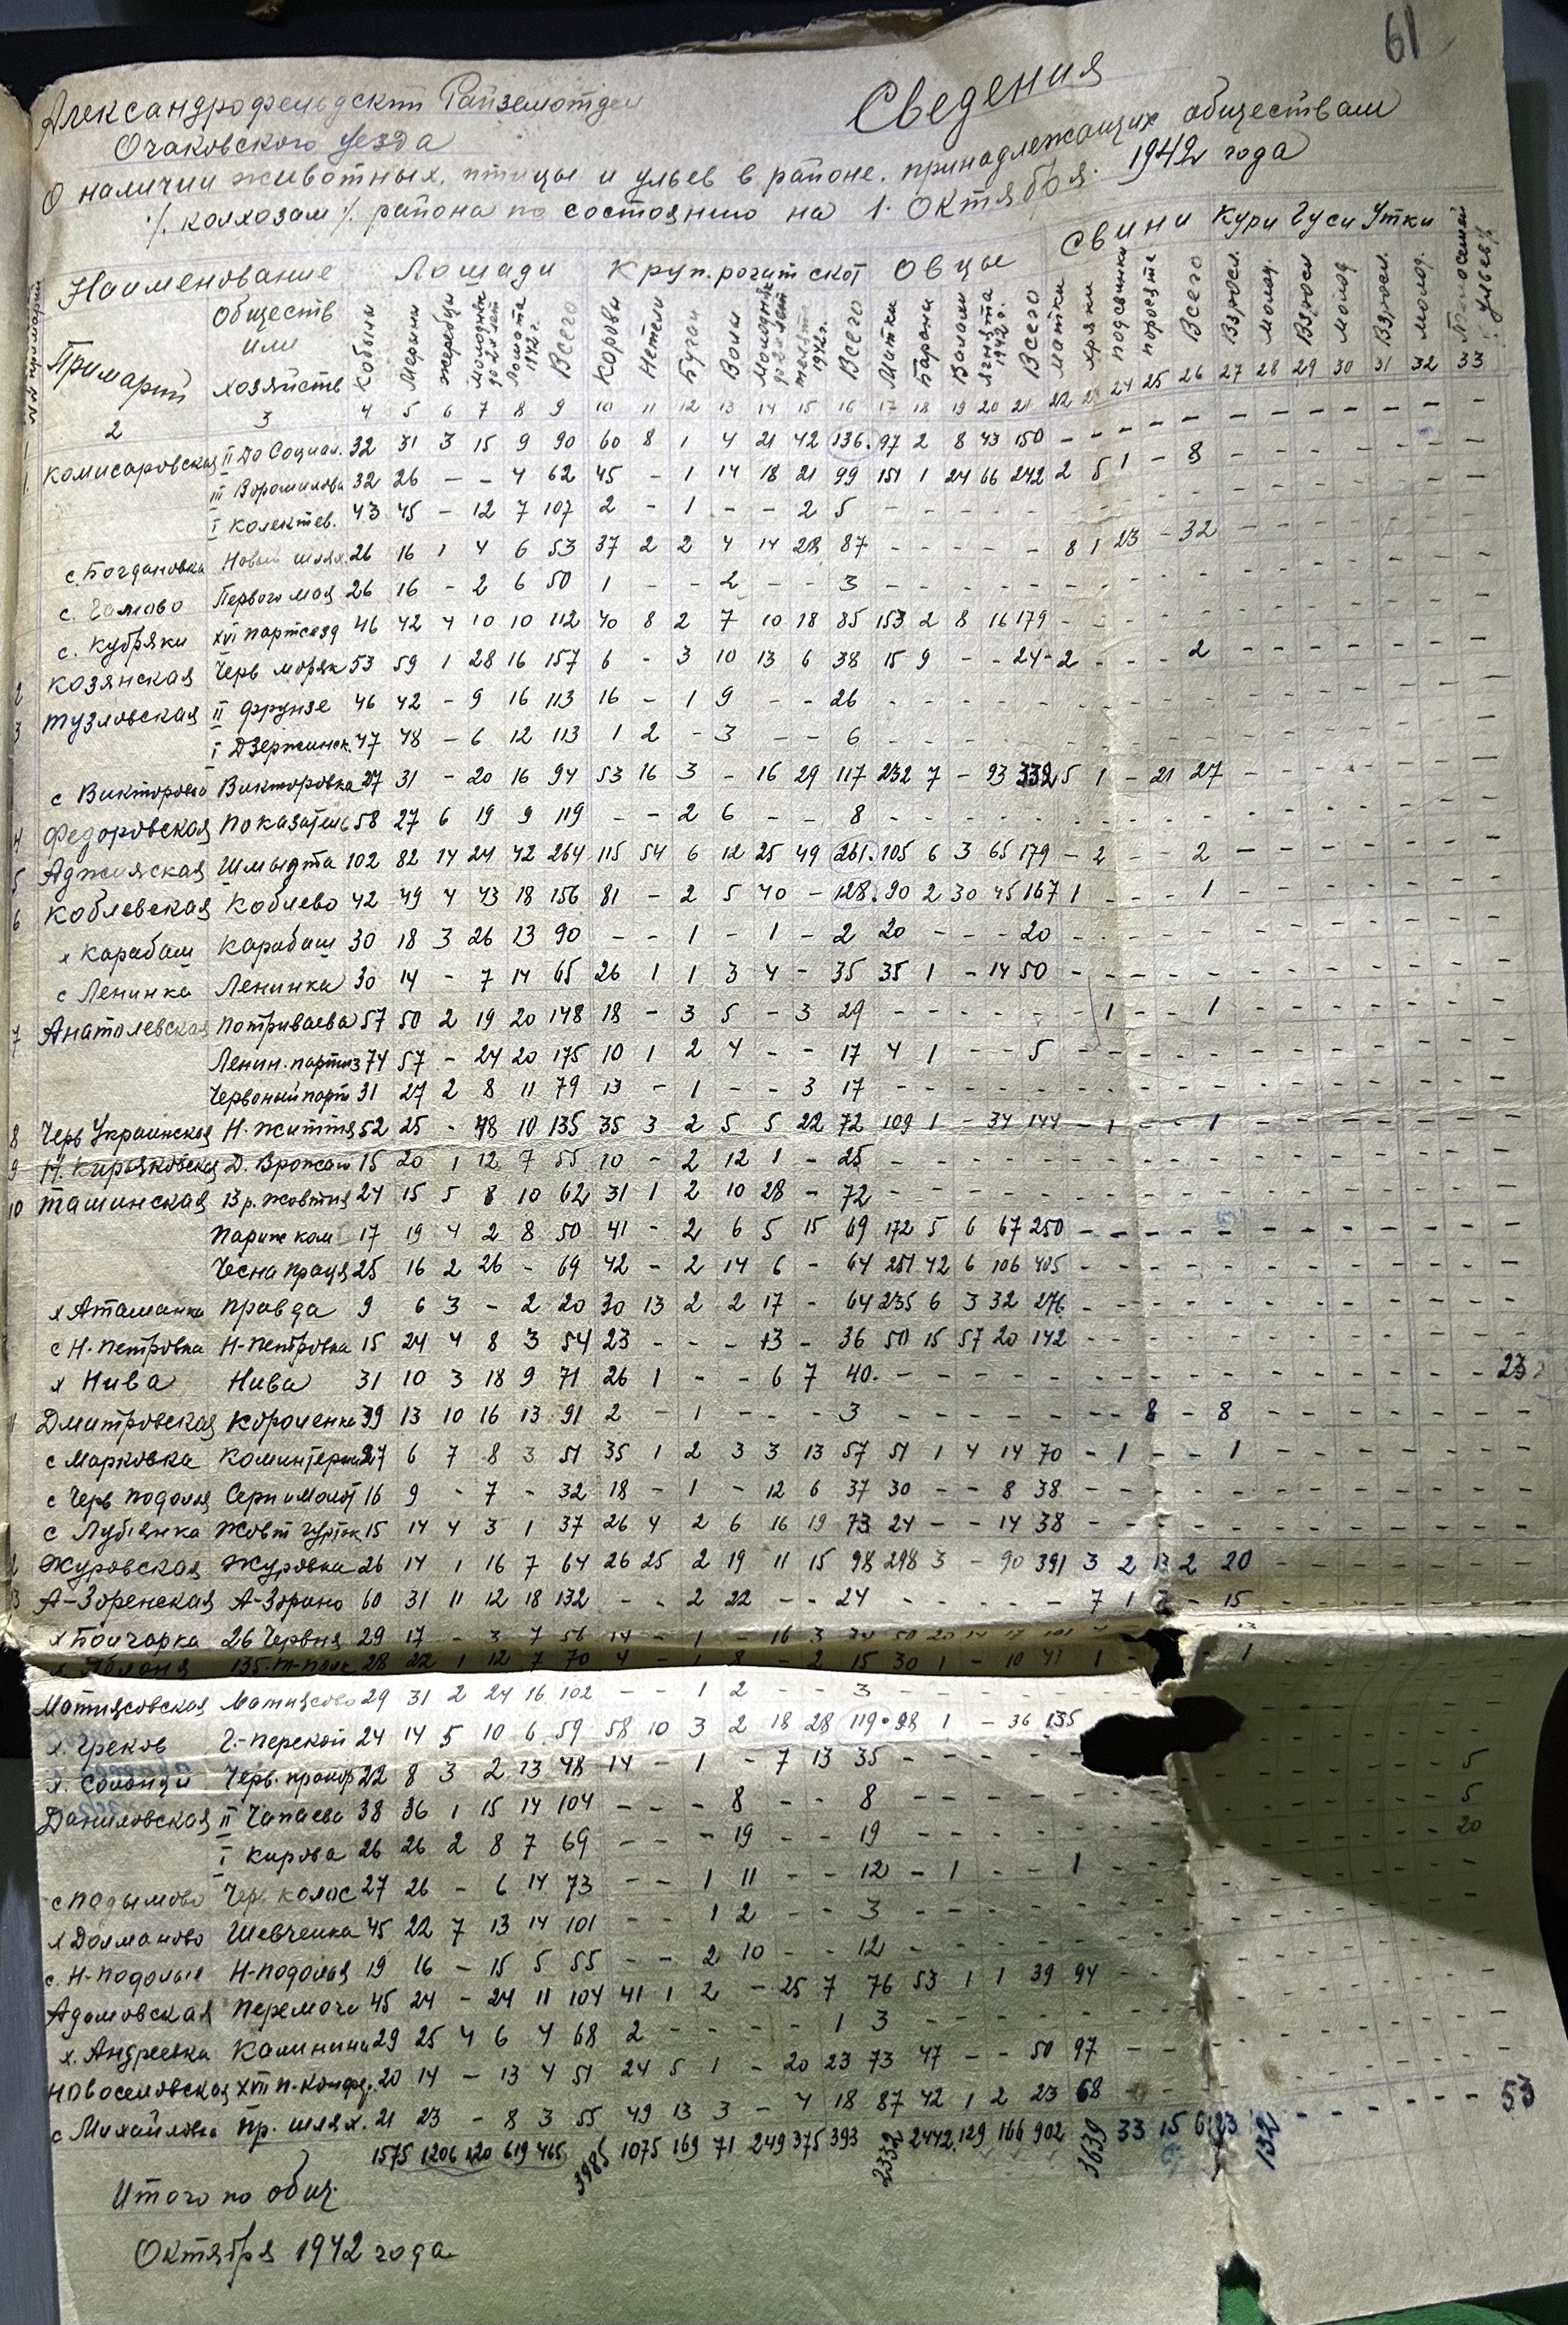 61
Александрофельдский Райземотдел
Очаковского уезда
Сведения
О наличии животных, птицы и ульев в районе, принадлежащих обществам
/. колхозам /. района по состоянию на 1. Октября. 1942 года
Наименование Лошади Круп. рогат скот Овцы Свини Кури Гуси Утки
Примарий Обществ или хозяйств Кобылы Мерины жеребцы молодняк до 2х лет Лошата 1942 г. Всего Коровы Нетели Бугаи Волы Молодняк до 2х лет телята 1942 г. Всего Матки барана Валахи ягнята 1942 г. Всего матки хряки подсвинки поросята Всего Взросл. молод. Взросл молод Взросл. молод. Ульев
2 3 4 5 6 7 8 9 10 11 12 13 14 15 16 17 18 19 20 21 22 23 24 25 26 27 28 29 30 31 32 33
1 Комисаровская II До Социал. 32 31 3 15 9 90 60 8 1 4 21 42 136. 97 2 8 43 150 - - - - - - - - - - - -
III Ворошилова 32 26 - - 4 62 45 - 1 14 18 21 99 151 1 24 66 242 2 5 1 - 8 - - - - - - -
I Колектив. 43 45 - 12 7 107 2 - 1 - - 2 5 - - - - - - - - - - - - - - - - -
с. Богдановка Новый шлях. 26 16 1 4 6 53 37 2 2 4 14 28 87 - - - - - 8 1 23 - 32 - - - - - - -
с. Гамово Первого мая 26 16 - 2 6 50 1 - - 2 - - 3 - - - - - - - - - - - - - - - - -
с. Кубряки XVI партсезд 46 42 4 10 10 112 40 8 2 7 10 18 85 153 2 8 16 179 - - - - - - - - - - - -
2 Козянская Черв моряк 53 59 1 28 16 157 6 - 3 10 13 6 38 15 9 - - 24 - 2 - - - 2 - - - - - - -
3 Тузловская II Фрунзе 46 42 - 9 16 113 16 - 1 9 - - 26 - - - - - - - - - - - - - - - - -
I Дзержинск. 47 48 - 6 12 113 1 2 - 3 - - 6 - - - - - - - - - - - - - - - - -
с Викторовка Викторовка 27 31 - 20 16 94 53 16 3 - 16 29 117 232 7 - 93 332 5 1 - 21 27 - - - - - - -
4 Федоровская Показатель 58 27 6 19 9 119 - - 2 6 - - 8 - - - - - - - - - - - - - - - - -
5 Аджияская Шмыдта 102 82 14 24 42 264 115 54 6 12 25 49 261. 105 6 3 65 179 - 2 - - 2 - - - - - - -
6 Коблевская Коблево 42 49 4 43 18 156 81 - 2 5 40 - 128. 90 2 30 45 167 1 - - - 1 - - - - - - -
х Карабаш Карабаш 30 18 3 26 13 90 - - 1 - 1 - 2 20 - - - 20 - - - - - - - - - - - -
с Ленинка Ленинка 30 14 - 7 14 65 26 1 1 3 4 - 35 35 1 - 14 50 - - - - - - - - - - - -
7 Анатолевская Потриваева 57 50 2 19 20 148 18 - 3 5 - 3 29 - - - - - - 1 - - 1 - - - - - - -
Ленин. партиз 74 57 - 24 20 175 10 1 2 4 - - 17 4 1 - - 5 - - - - - - - - - - - -
Червоный парт 31 27 2 8 11 79 13 - 1 - - 3 17 - - - - - - - - - - - - - - - - -
8 Черв Украинская Н. життя 52 25 - 48 10 135 35 3 2 5 5 22 72 109 1 - 34 144 - 1 - - 1 - - - - - - -
9 Н. Кирьяковская Д. Врожай 15 20 1 12 7 55 10 - 2 12 1 - 25 - - - - - - - - - - - - - - - - -
10 Ташинская 13 р. жовтня 24 15 5 8 10 62 31 1 2 10 28 - 72 - - - - - - - - - - - - - - - - -
Париж ком 17 19 4 2 8 50 41 - 2 6 5 15 69 172 5 6 67 250 - - - - - - - - - - - -
Чесна праця 25 16 2 26 - 69 42 - 2 14 6 - 64 251 42 6 106 405 - - - - - - - - - - - -
х Атаманка Правда 9 6 3 - 2 20 30 13 2 2 17 - 64 235 6 3 32 276 - - - - - - - - - - - -
с Н. Петровка Н-Петровка 15 24 4 8 3 54 23 - - - 13 - 36 50 15 57 20 142 - - - - - - - - - - - -
х Нива Нива 31 10 3 18 9 71 26 1 - - 6 7 40. - - - - - - - - - - - - - - - - 23
Дмитровская Короленка 39 13 10 16 13 91 2 - 1 - - - 3 - - - - - - - 8 - 8 - - - - - - -
с Марковка Коминтерна 27 6 7 8 3 51 35 1 2 3 3 13 57 51 1 4 14 70 - 1 - - 1 - - - - - - -
с Черв Подолья Серп и Молот 16 9 - 7 - 32 18 - 1 - 12 6 37 30 - - 8 38 - - - - - - - - - - - -
с Лубянка Жовт Гурток 15 14 4 3 1 37 26 4 2 6 16 19 73 24 - - 14 38 - - - - - - - - - - - -
Журовская Журовка 26 14 1 16 7 64 26 25 2 19 11 15 98 298 3 - 90 391 3 2 13 2 20 - - - - - - -
А-Зоренская А-Зорино 60 31 11 12 18 132 - - 2 22 - - 24 - - - - - 7 1 - 15 - - - - - - -
х Бончарка 26 Червня 29 17 - 3 7 56 14 - 1 - 16 3
28 22 1 12 7 70 4 - 1 8 - 2 15 30 1 - 10 41 1 - - 1
Матиясовская Матиясово 29 31 2 24 16 102 - - 1 2 - - 3 - - - - - -
х. Греков Г.-Перекоп 24 14 5 10 6 59 58 10 3 2 18 28 119. 98 1 - 36 135
х. Солонци Черв. прапор 22 8 3 2 13 48 14 - 1 - 7 13 35 - - - - - - 5
Даниловская II Чапаева 38 36 1 15 14 104 - - - 8 - - 8 - - - - - - 5
I Кирова 26 26 2 8 7 69 - - - 19 - - 19 - - - - - - 20
с Падымово Черв колос 27 26 - 6 14 73 - - 1 11 - - 12 - 1 - - 1 - -
х Долманово Шевченка 45 22 7 13 14 101 - - 1 2 - - 3 - - - - - - -
с. Н-Подолье Н-Подолья 19 16 - 15 5 55 - - 2 10 - - 12 - - - - - - -
Адамовская Перемога 45 24 - 24 11 104 41 1 2 - 25 7 76 53 1 1 39 94 - -
х. Андреевка Калинина 29 25 4 6 4 68 2 - - - - 1 3 - - - - - - -
Новоселовская XVII п-конфр. 20 14 - 13 4 51 24 5 1 - 20 23 73 47 - - 50 97 - - -
с Михайловка Пр. шлях. 21 23 - 8 3 55 49 13 3 - 4 18 87 42 1 2 23 68 - - - - - - - - 53
1575 1206 120 619 465 3985 1075 169 71 249 375 393 2332 2442 129 166 902 3639 33 15 61 23 132
Итого по общ.
Октября 1942 года